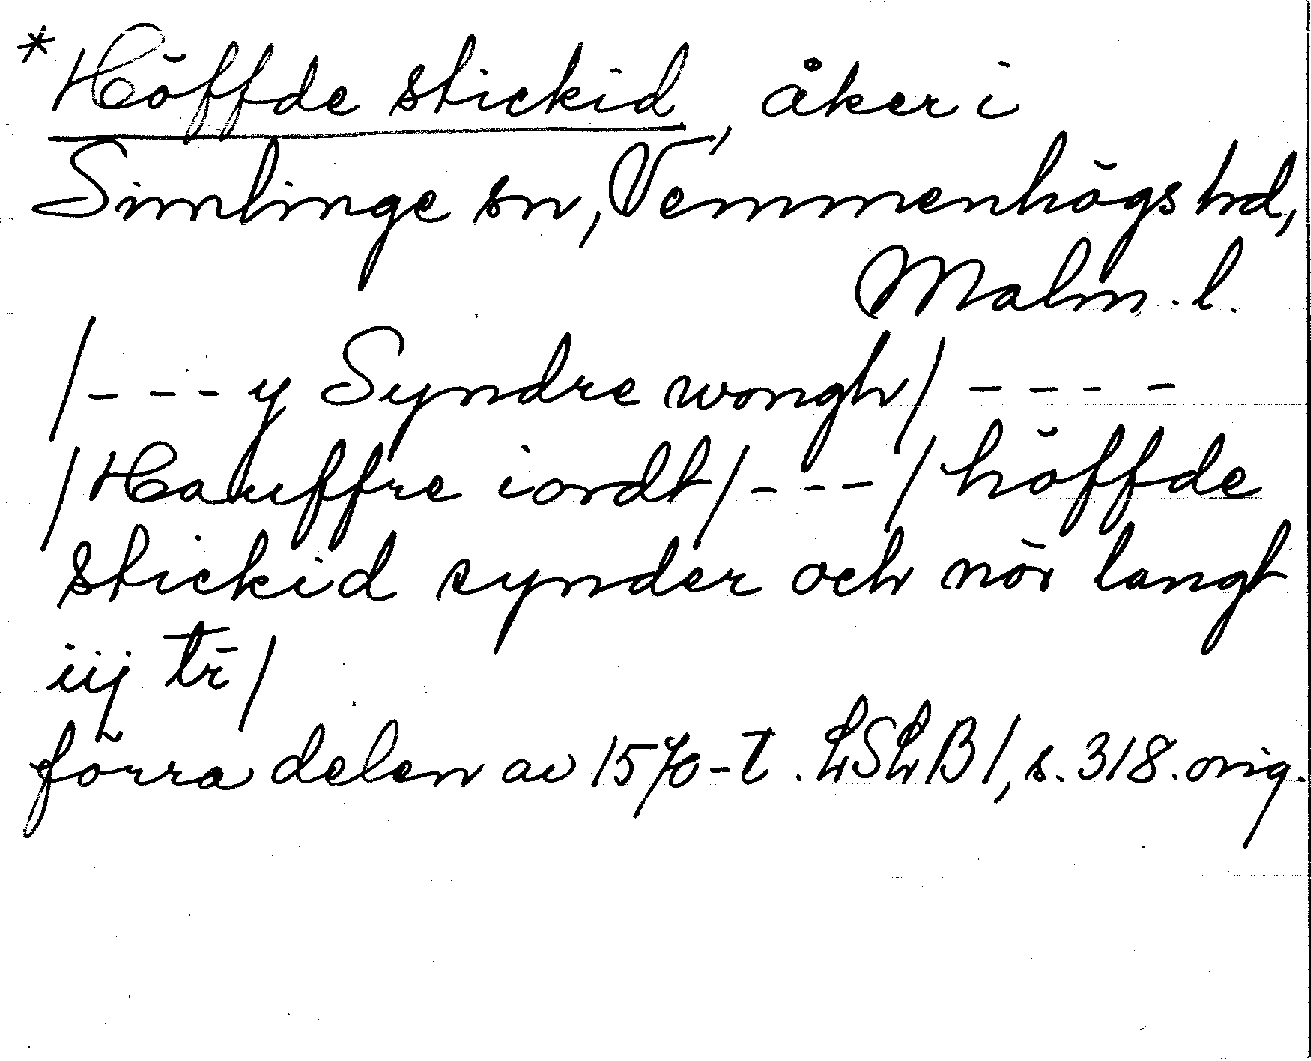 *Höffde stickid, åker i
Simlinge sn, Vemmenhögs hd,
Malm. l.
/- - - y Syndre wongh/ - - - -
/Hauffre iordt/- - -/höffde
stickid synder och nör langt
iij tr̄/
förra delen av 1570-t. LSLB1, s. 318. orig.